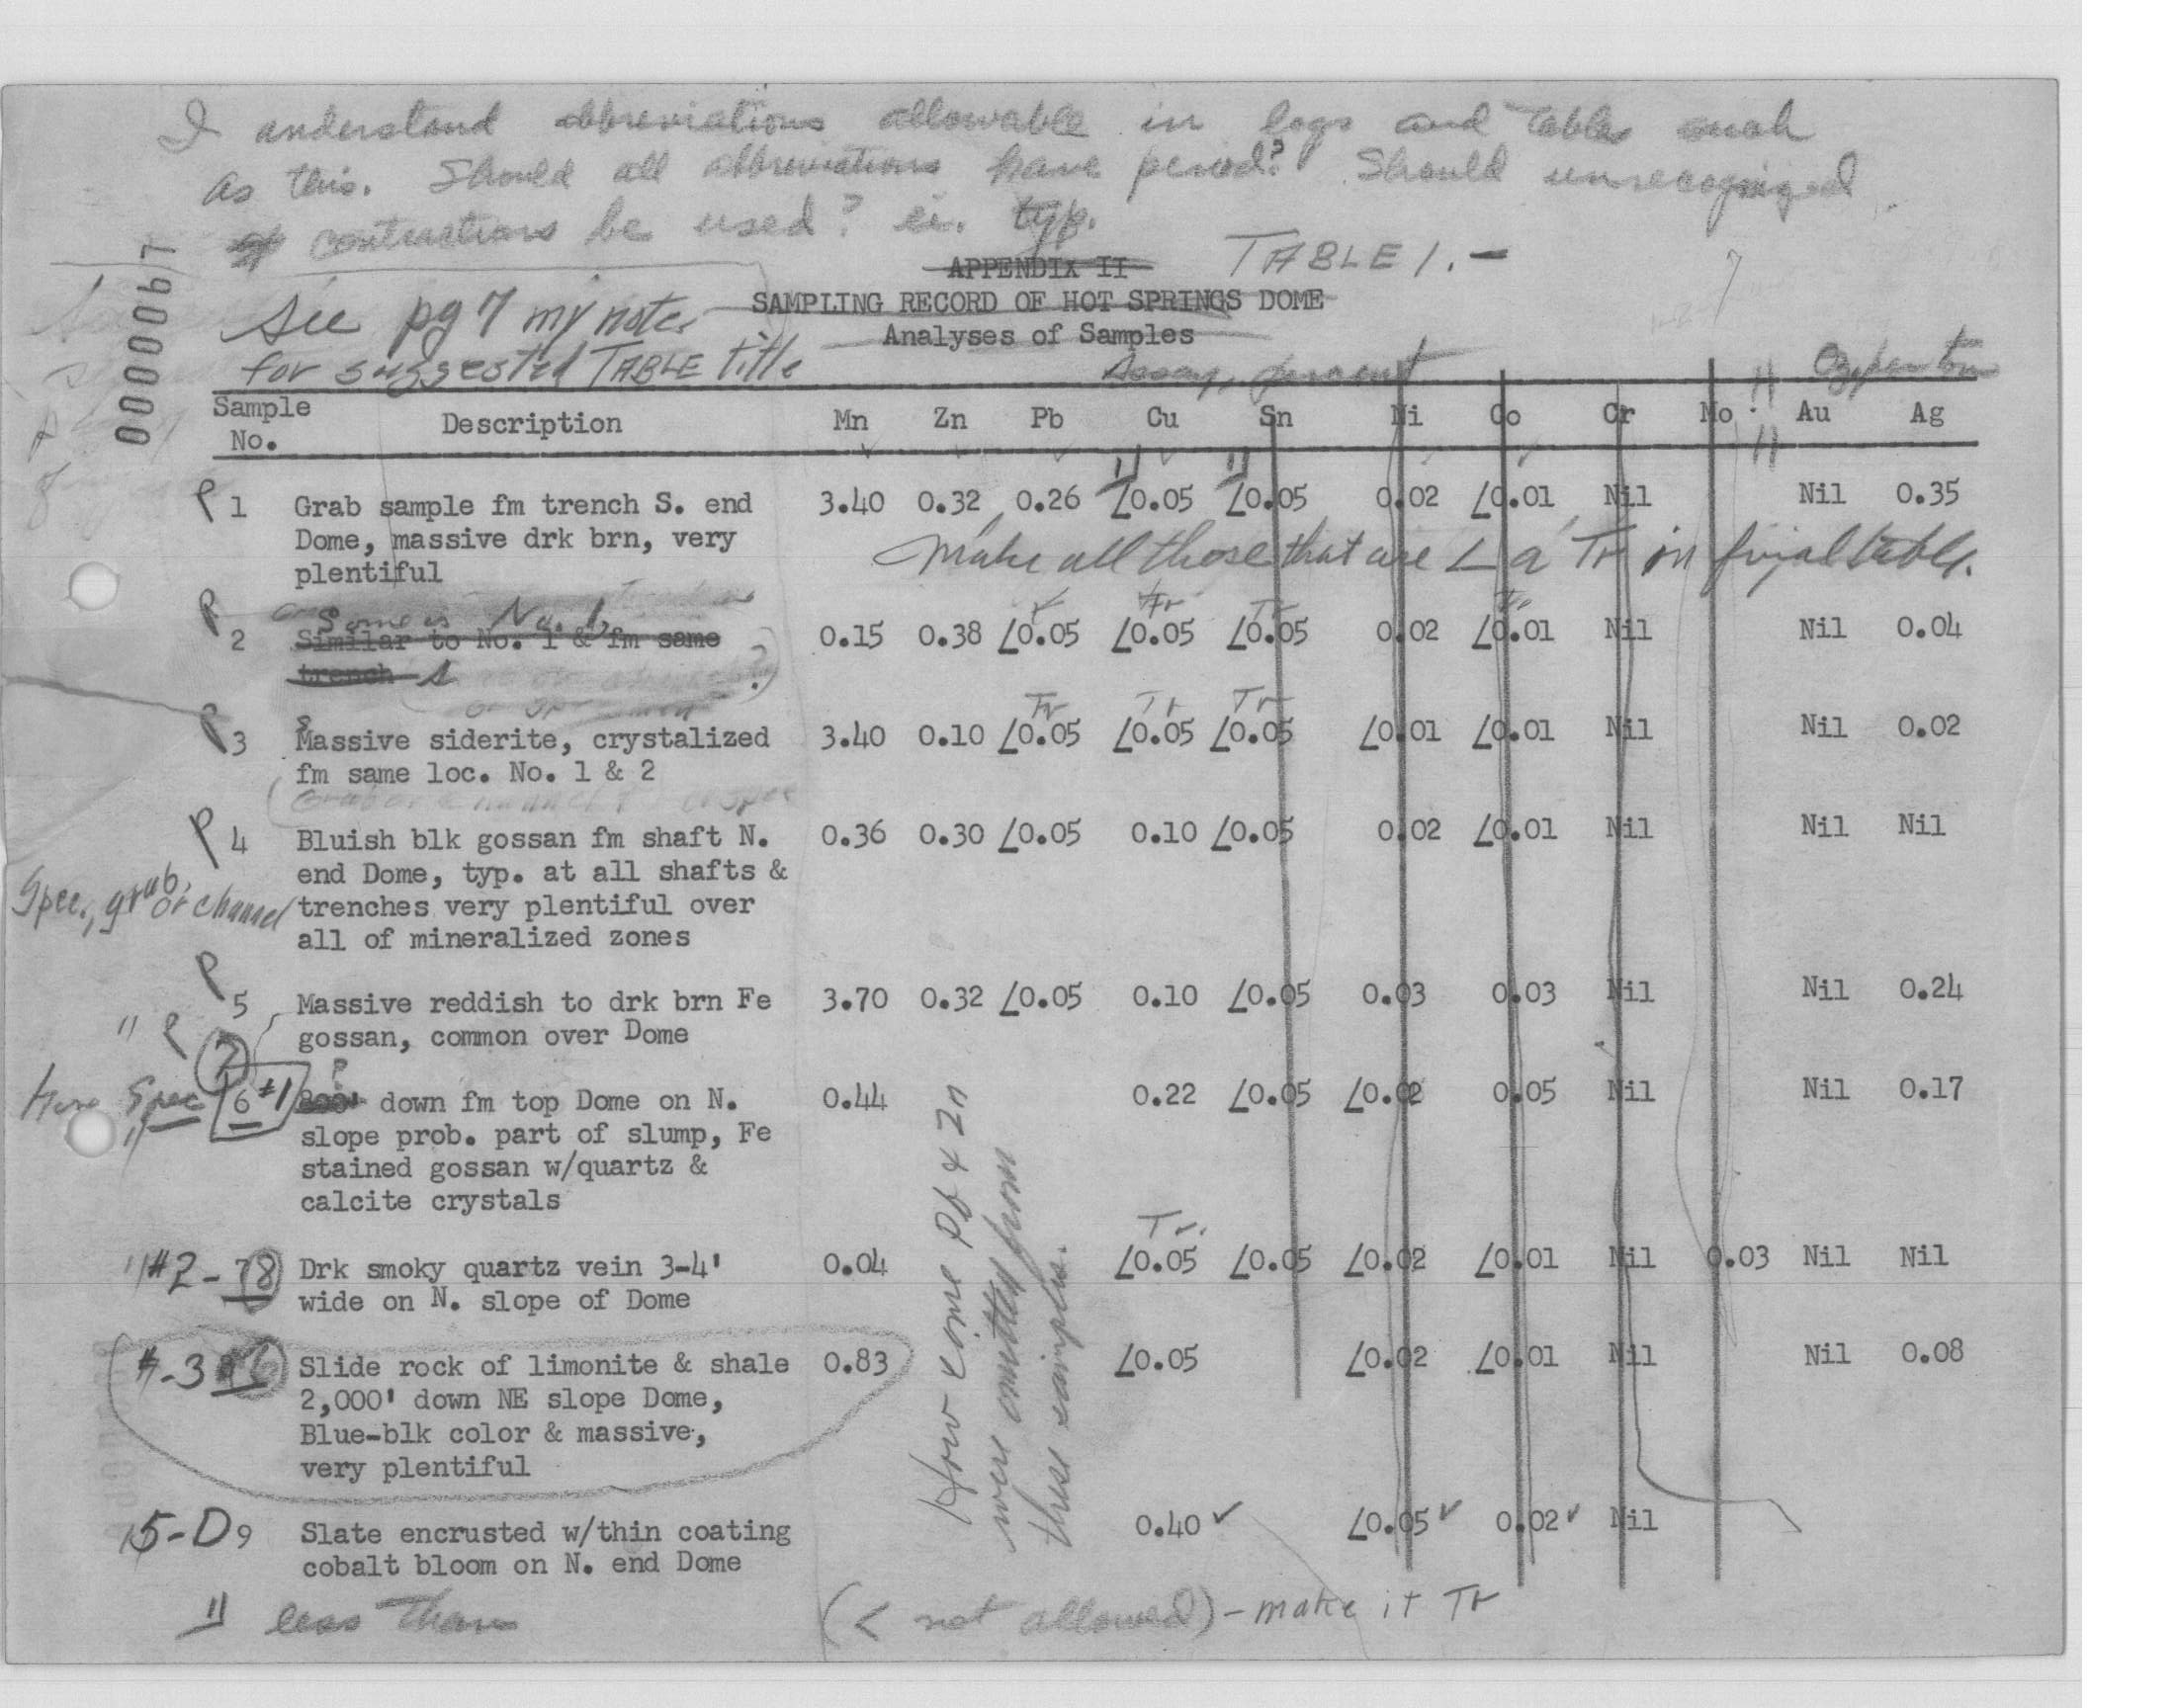 I understand abbreviations allowable in logs and tables such
as this. Should all abbreviations have period? Should unrecognized
contractions be used? ei. typ.
APPENDIX II TABLE 1.-
SAMPLING RECORD OF HOT SPRINGS DOME
Analyses of Samples
See pg 7 my notes
for suggested TABLE title
0000067
Assay, percent Oz per ton
Sample No. Description Mn Zn Pb Cu Sn Ni Co Cr Mo Au Ag
1 Grab sample fm trench S. end 3.40 0.32 0.26 ∠0.05 ∠0.05 0.02 ∠0.01 Nil Nil 0.35
Dome, massive drk brn, very
plentiful
Make all those that are ∠ a Tr in final table.
Same as No. 1,
2 Similar to No. 1 & fm same 0.15 0.38 ∠0.05 ∠0.05 ∠0.05 0.02 ∠0.01 Nil Nil 0.04
trench
Tr Tr Tr
3 Massive siderite, crystalized 3.40 0.10 ∠0.05 ∠0.05 ∠0.05 ∠0.01 ∠0.01 Nil Nil 0.02
fm same loc. No. 1 & 2
4 Bluish blk gossan fm shaft N. 0.36 0.30 ∠0.05 0.10 ∠0.05 0.02 ∠0.01 Nil Nil Nil
end Dome, typ. at all shafts &
trenches very plentiful over
all of mineralized zones
Spec., grab, or channel
5 Massive reddish to drk brn Fe 3.70 0.32 ∠0.05 0.10 ∠0.05 0.03 0.03 Nil Nil 0.24
gossan, common over Dome
Spec 6 #1 down fm top Dome on N. 0.44 0.22 ∠0.05 ∠0.02 0.05 Nil Nil 0.17
slope prob. part of slump, Fe
stained gossan w/quartz &
calcite crystals
Tr.
#2-78 Drk smoky quartz vein 3-4' 0.04 ∠0.05 ∠0.05 ∠0.02 ∠0.01 Nil 0.03 Nil Nil
wide on N. slope of Dome
#-3 Slide rock of limonite & shale 0.83 ∠0.05 ∠0.02 ∠0.01 Nil Nil 0.08
2,000' down NE slope Dome,
Blue-blk color & massive,
very plentiful
How come Pb & Zn
were omitted from
these samples.
5-D9 Slate encrusted w/thin coating 0.40 ∠0.05 0.02 Nil
cobalt bloom on N. end Dome
less than (< not allowed) - make it Tr